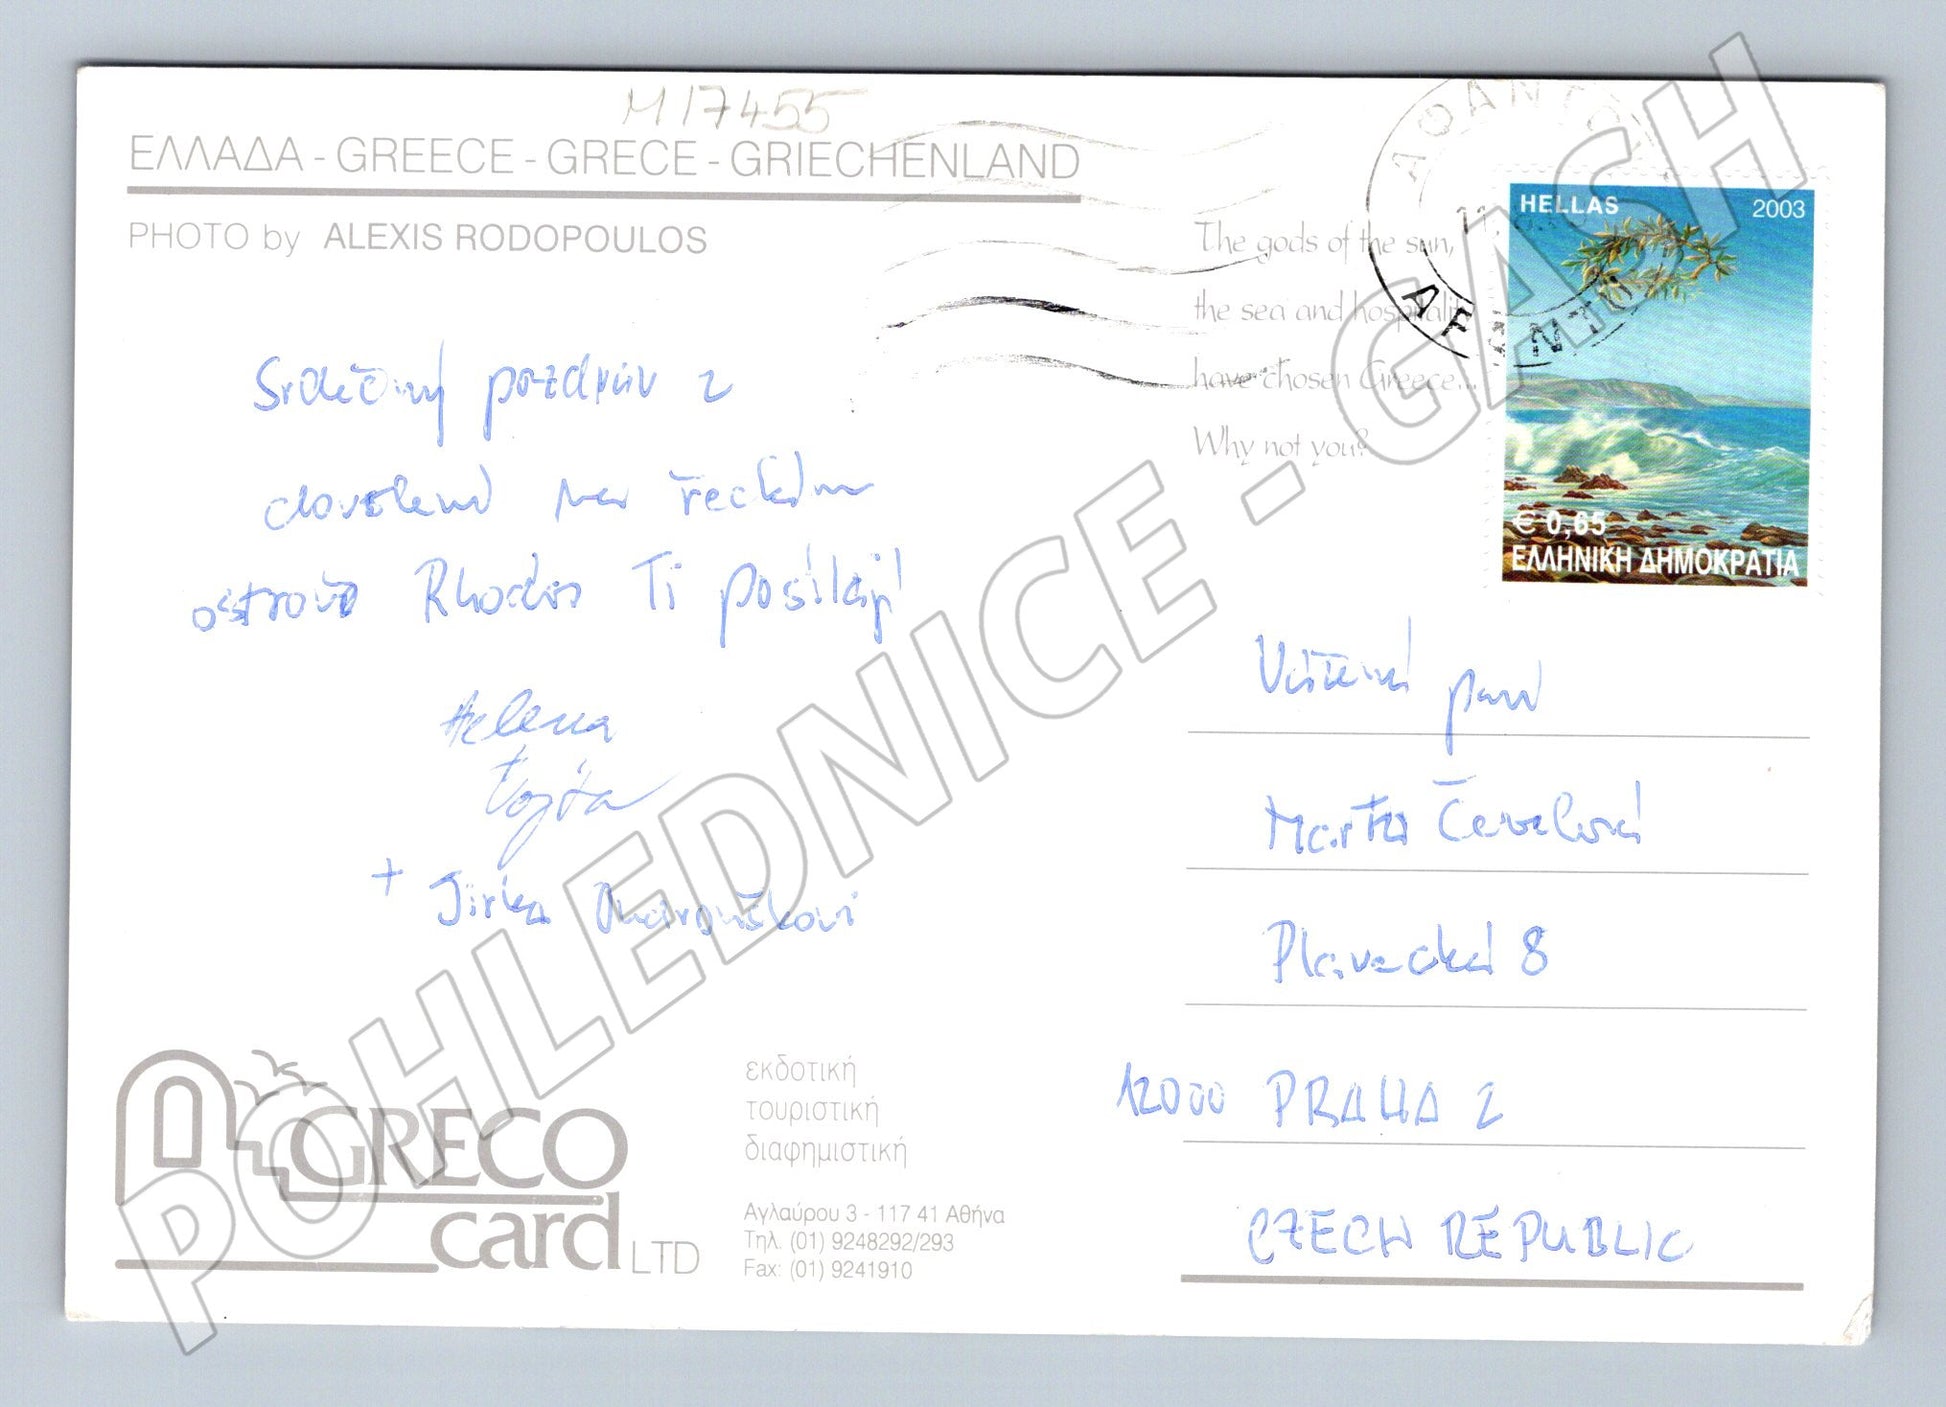 M 17455
ΕΛΛΑΔΑ - GREECE - GRECE - GRIECHENLAND
PHOTO by ALEXIS RODOPOULOS
The gods of the sun,
the sea and hospitality
have chosen Greece...
Why not you?
HELLAS 2003
€ 0,65
ΕΛΛΗΝΙΚΗ ΔΗΜΟΚΡΑΤΙΑ
ΑΦΑΝΤΟΥ
AFANTOU
Srdečný pozdrav z
dovolené na řeckém
ostrově Rhodos Ti posílají
Helena
Vojta
+ Jirka
Vážená paní
Marta
Plavecká 8
12000 PRAHA 2
CZECH REPUBLIC
GRECO
card LTD
εκδοτική
τουριστική
διαφημιστική
Αγλαύρου 3 - 117 41 Αθήνα
Τηλ. (01) 9248292/293
Fax: (01) 9241910
POHLEDNICE - GASH